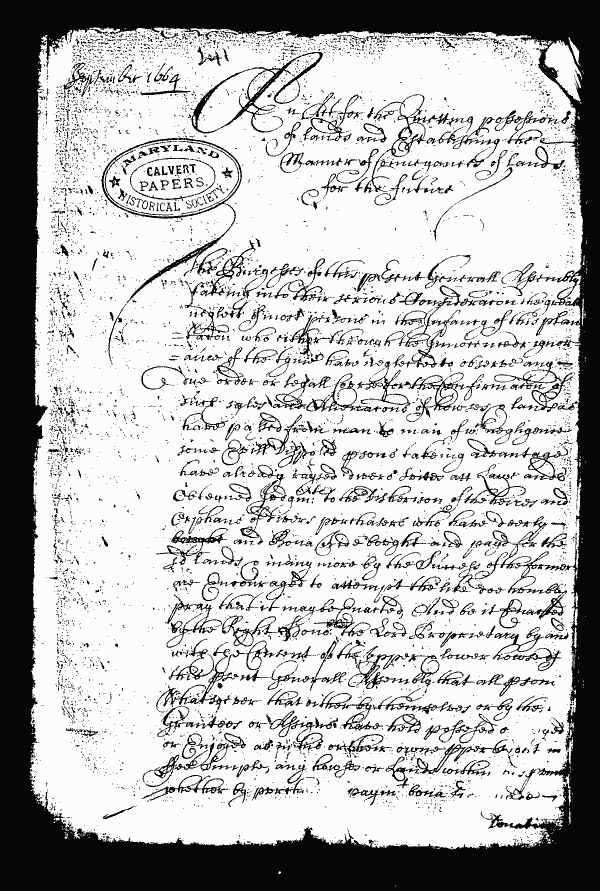 September 1664
MARYLAND
CALVERT
PAPERS.
HISTORICAL SOCIETY.
An Act for the Quietting possessions
of lands and Establishing the
Manner of Conveyances of lands
for the future
The Burgesses of this psent Generall Assembly
takeing into their serious Consideracon the great
neglect of most persons in the Infancy of this plan
=tacon who either through the Ignorance
=ance of the have neglected to observe any
due order or legall for the Confirmacon of
such sales and Alienacons of howses & lands as
have passed from man to man of wch negligence
some Evill disposed psons takeing advantage
have already raysed divers Suites att Lawe and
Obteyned Judgmts to the disherison of the heires and
Orphans of divers purchasers who have deerly
bought and Bona fide bought and payd for the
sd lands & many more by the Success of the former
are Encouraged to attempt the like doe humbly
pray that it may be Enacted And be it Enacted
by the Right Honoble the Lord Proprietary by and
with the Consent of the upper & lower howse of
this psent Generall Assembly that all psons
Whatsoever that either by themselves or by their
Grantees or Assignes have held possessed o
or Enjoyed as in his or their owne pper right in
ffee Simple, any howses or Lands within
whether by bona
Donation